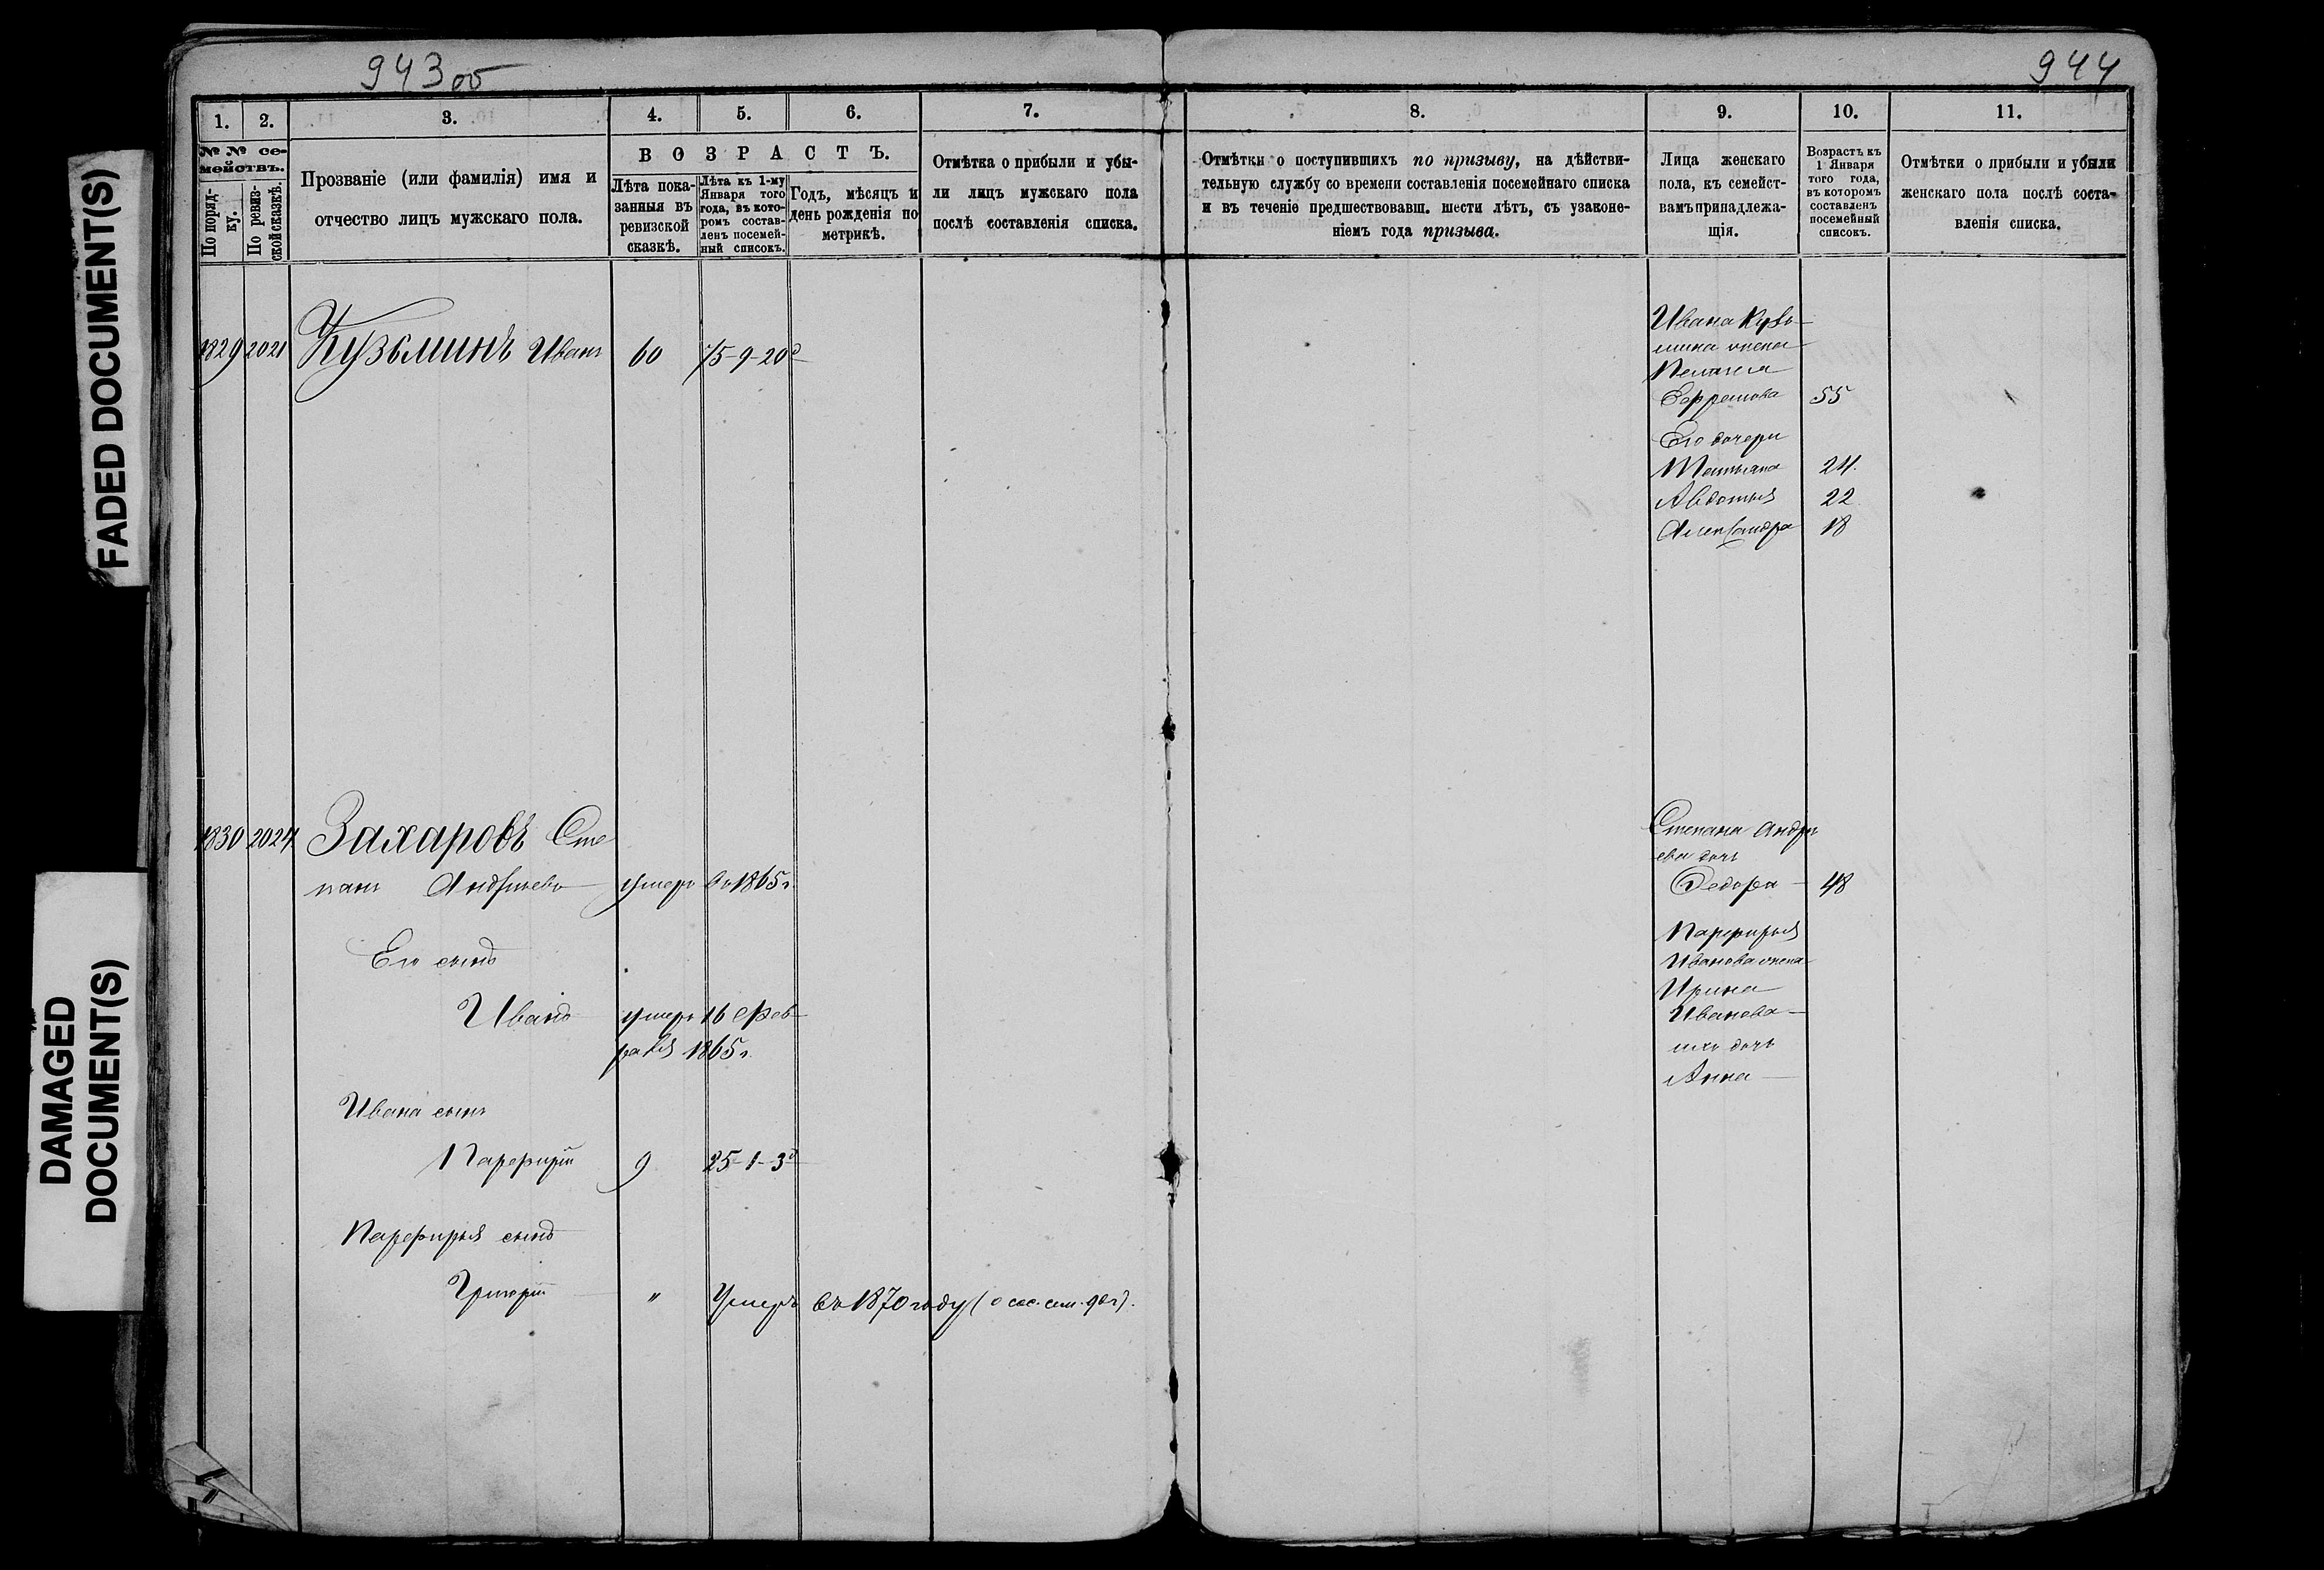 943 об
944
FADED DOCUMENT(S)
DAMAGED
DOCUMENT(S)
1.
2.
3.
4.
5.
6.
7.
8.
9.
10.
11.
№ № се-
мействъ.
По поряд-
ку.
По ревиз-
ской сказкѣ.
Прозваніе (или фамилія) имя и
отчество лицъ мужскаго пола.
ВОЗРАСТЪ.
Лѣта пока-
занныя въ
ревизской
сказкѣ.
Лѣта къ 1-му
Января того
года, въ кото-
ромъ состав-
ленъ посемей-
ный списокъ.
Годъ, мѣсяцъ и
день рожденія по
метрикѣ.
Отмѣтка о прибыли и убы-
ли лицъ мужскаго пола
послѣ составленія списка.
Отмѣтки о поступившихъ по призыву, на дѣйстви-
тельную службу со времени составленія посемейнаго списка
и въ теченіе предшествовавш. шести лѣтъ, съ узаконе-
ніемъ года призыва.
Лица женскаго
пола, къ семейст-
вамъ принадлежа-
щія.
Возрастъ къ
1 Января
того года,
въ которомъ
составленъ
посемейный
списокъ.
Отмѣтки о прибыли и убыли
женскаго пола послѣ соста-
вленія списка.
1829 2021 Кузьминъ Иванъ 60 75-9-20д
Ивана Кузь-
мина жена
Пелагея
Ефремова 55
Его дочери
Татьяна 24.
Авдотья 22
Александра 18
1830 2024 Захаровъ Сте
панъ Андреевъ умеръ въ 1865 г.
Его сынъ
Иванъ умеръ 16 Фев
раля 1865 г.
Ивана сынъ
Парфирій 9 25-1-3д
Парфирья сынъ
Григорій " Умеръ въ 1870 году
Степана Андре
ева дочь
Федора 48
Парфирья
Иванова жена
Ирина
Иванова
ихъ дочь
Анна